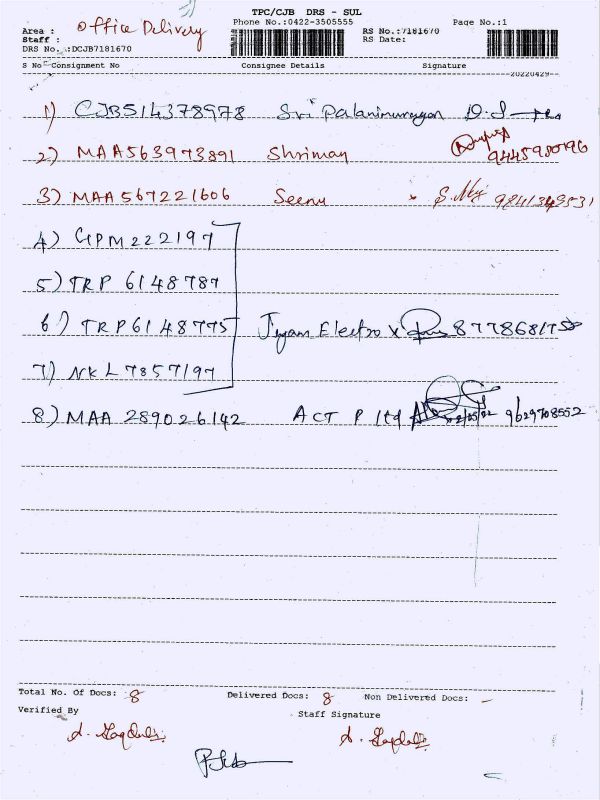 TPC/CJB DRS - SUL
Area : Office Delivery Phone No.:0422-3505555 RS No.:7181670 Page No.:1
Staff : RS Date:
DRS No. :DCJB7181670
S No Consignment No Consignee Details Signature
20220429
1) CJB514378978 Sri Palanimurugan
2) MAA563973891 Shriman 9445980196
3) MAA567221606 Seenu 9841349531
4) GPM222197
5) TRP 6148787
6) TRP6148775 Jeyam Electro x 8778681758
7) NKL7857197
8) MAA 289026142 ACT P ltd 9629708552
Total No. Of Docs: 8 Delivered Docs: 8 Non Delivered Docs: -
Verified By Staff Signature